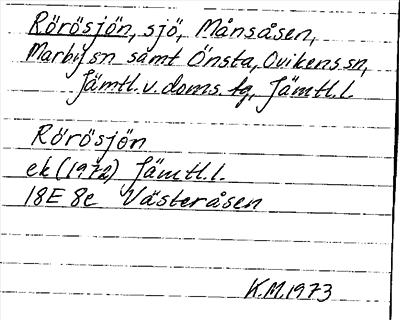 Rörösjön, sjö, Månsåsen,
Marby sn samt Önsta, Ovikens sn,
Jämtl. v. doms. tg, Jämtl. l.
Rörösjön
ek (1972) Jämtl. l.
18E 8e Västeråsen
K.M. 1973